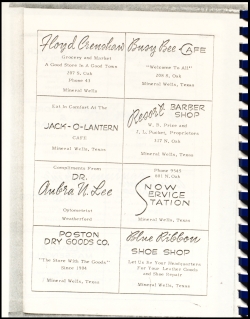 Floyd Crenshaw
Grocery and Market
A Good Store in A Good Town
Phone 43
Mineral Wells
Busy Bee CAFE
"Welcome To All"
N. Oak
Mineral Wells, Texas
Eat In Comfort At The
JACK-O-LANTERN
CAFE
Mineral Wells, Texas
Resort BARBER
SHOP
W. N. Price and
J. L. Pucket, Proprietors
117 N. Oak
Mineral Wells, Texas
Compliments From
DR.
Aubra N. Lee
Optometrist
Weatherford
Phone 9565
601 N. Oak
SNOW
SERVICE
STATION
Mineral Wells, Texas
POSTON
DRY GOODS CO.
"The Store With The Goods"
Since 1904
Mineral Wells, Texas
Blue Ribbon
SHOE SHOP
Let Us Be Your Headquarters
For Your Leather Goods
and Shoe Repair
Mineral Wells, Texas